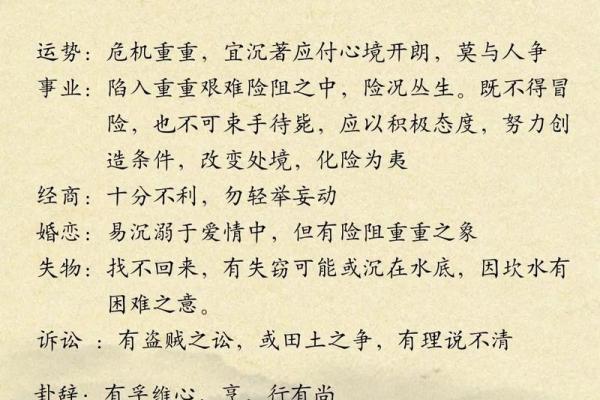 运势：危机重重，宜沉著应付心境开朗，莫与人争
事业：陷入重重艰难险阻之中，险况丛生。既不得冒
险，也不可束手待毙，应以积极态度，努力创
造条件，改变处境，化险为夷
经商：十分不利，勿轻举妄动
婚恋：易沉溺于爱情中，但有险阻重重之象
失物：找不回来，有失窃可能或沉在水底，因坎水有
困难之意。
诉讼 ：有盗贼之讼，或田土之争，有理说不清
卦辞：有孚维心，亨，行有尚